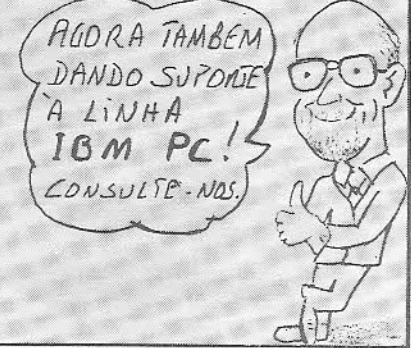 AGORA TAMBEM
DANDO SUPORTE
À LINHA
IBM PC!
CONSULTE-NOS.